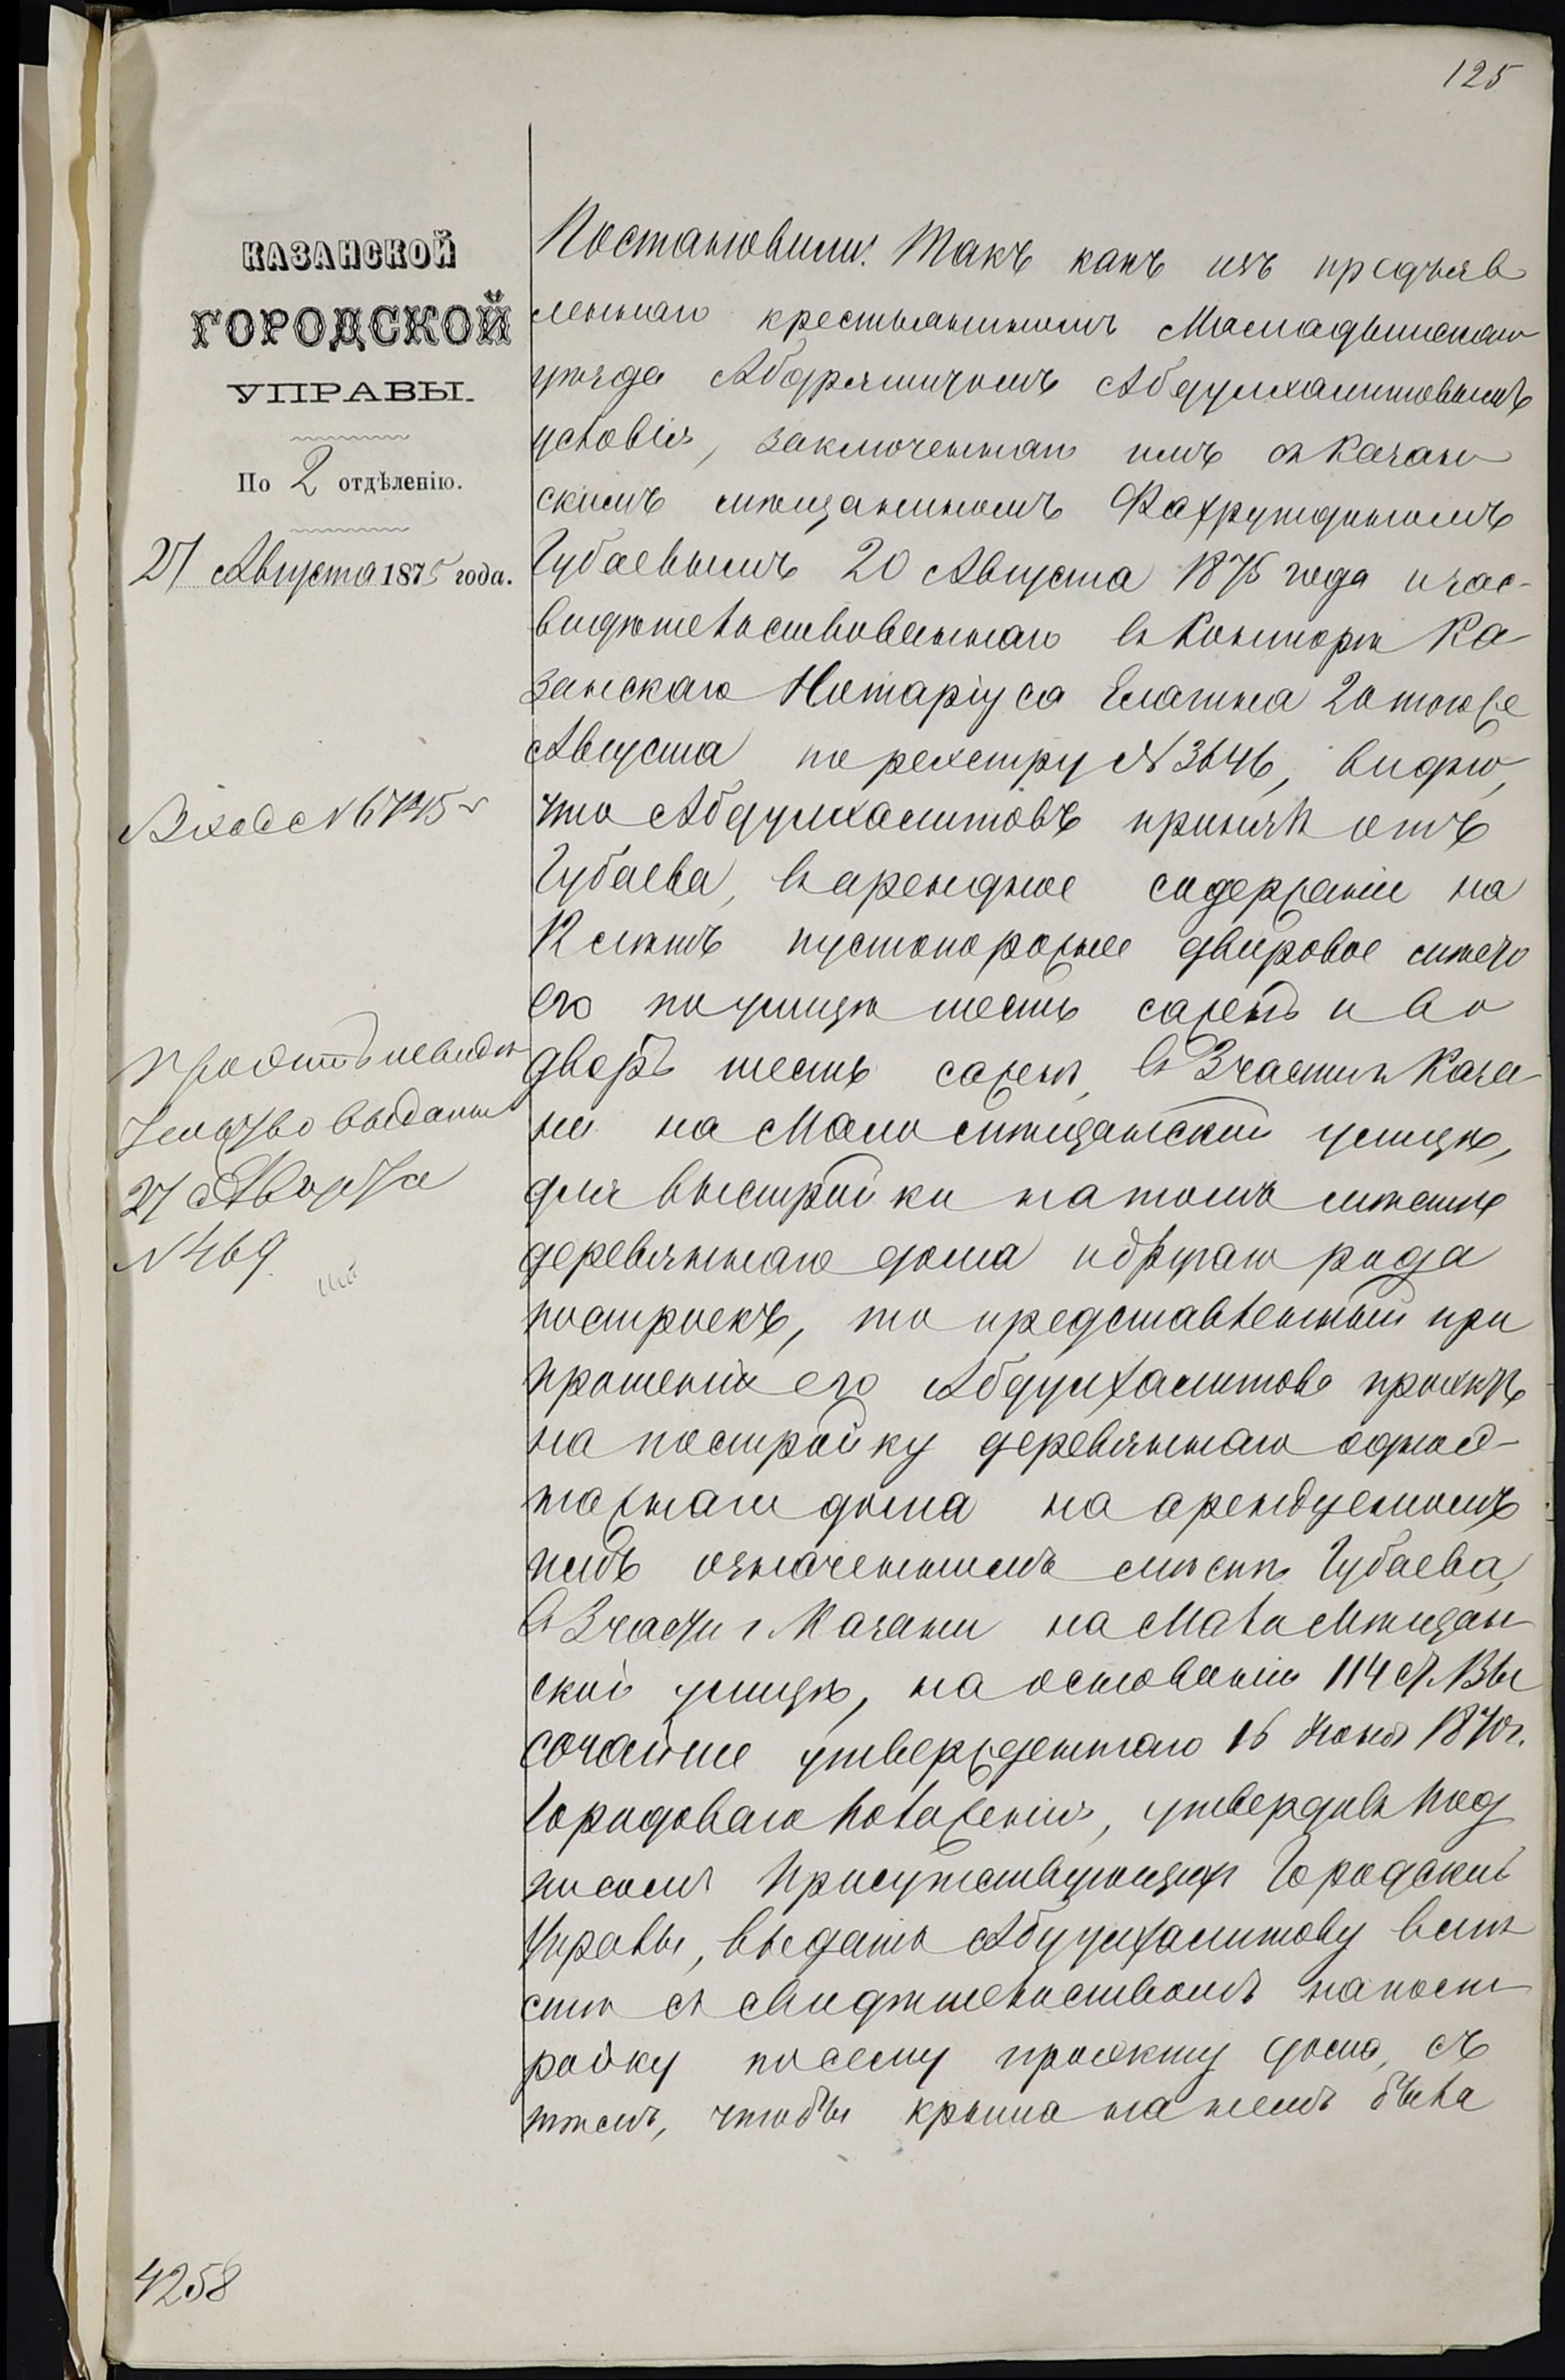 125
КАЗАНСКОЙ
ГОРОДСКОЙ
УПРАВЫ.
По 2 отдѣленію.
27 Августа 1875 года.
Вход № 6745
Проэктъ и свидѣ
тельство выданы
27 Августа
№ 469.
4258
Постановили: Такъ какъ изъ предъяв
леннаго крестьяниномъ Мамадышскаго
уѣзда Абдряшитомъ Абдулхамитовымъ
условія, заключеннаго имъ съ Казан
скимъ мѣщаниномъ Фахрутдиномъ
Губаевымъ 20 Августа 1875 года и зас-
видѣтельствованнаго въ Конторѣ Ка
занскаго Нотаріуса Елагина 20 того же
Августа по реэстру № 3646, видно,
что Абдулхамитовъ принялъ отъ
Губаева, въ арендное содержаніе на
12 лѣтъ пустопорожнее дворовое мѣсто
его по улицѣ шесть сажень и во
дворъ шесть сажень, въ 3 части Каза
ни на Мало Мѣщанской улицѣ,
для выстройки на томъ мѣстѣ
деревяннаго дома и другаго рода
построекъ, то представленный при
прошеніи его Абдулхамитова проэктъ
на постройку деревяннаго одноэ-
тажнаго дома на арендуемомъ
имъ означенномъ мѣстѣ Губаева,
въ 3 части г. Казани на Мало Мѣщан
ской улицѣ, на основаніи 114 ст. Вы
сочайше утвержденнаго 16 Іюня 1870 г.
Городоваго Положенія, утвердивъ под
писомъ Присутствующихъ Городской
Управы, выдать Абдулхамитову вмѣ
стѣ съ свидѣтельствомъ на пост
ройку по сему проэкту дома, съ
тѣмъ, чтобы крыша на немъ была